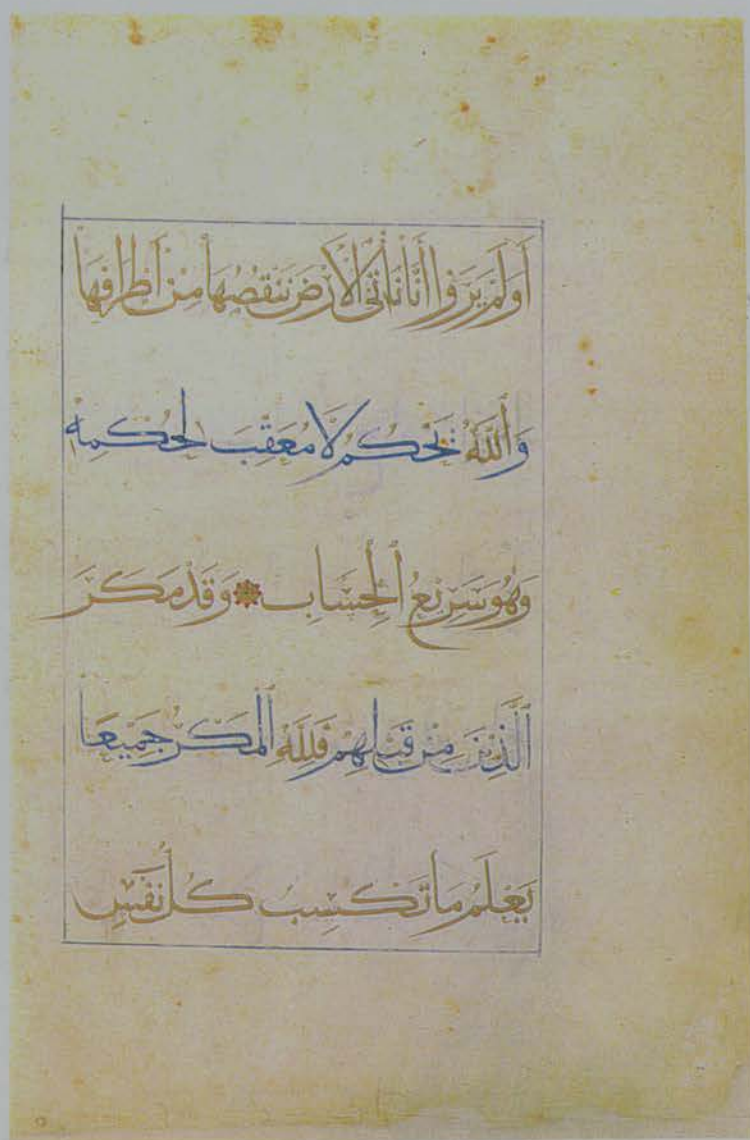 أَوَلَمْ يَرَوْا أَنَّا نَأْتِي الْأَرْضَ نَنقُصُهَا مِنْ أَطْرَافِهَا
وَاللَّهُ يَحْكُمُ لَا مُعَقِّبَ لِحُكْمِهِ
وَهُوَ سَرِيعُ الْحِسَابِ وَقَدْ مَكَرَ
الَّذِينَ مِنْ قَبْلِهِمْ فَلِلَّهِ الْمَكْرُ جَمِيعًا
يَعْلَمُ مَا تَكْسِبُ كُلُّ نَفْسٍ